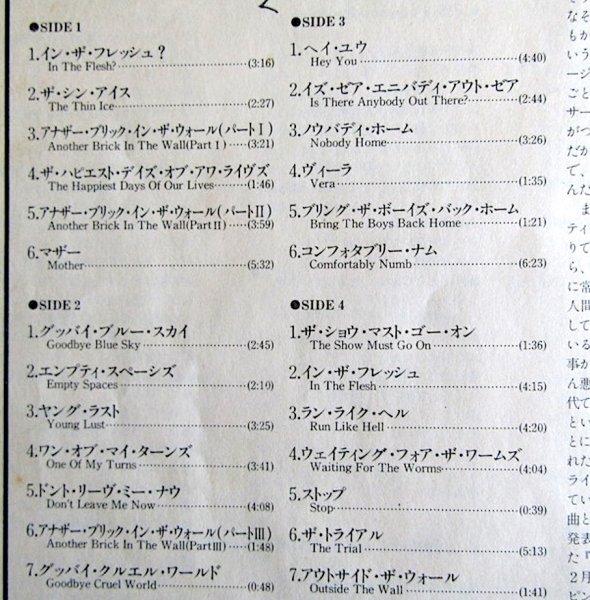 ●SIDE 1
1.イン・ザ・フレッシュ?
In The Flesh?(3:16)
2.ザ・シン・アイス
The Thin Ice(2:27)
3.アナザー・ブリック・イン・ザ・ウォール(パートⅠ)
Another Brick In The Wall(PartⅠ)(3:21)
4.ザ・ハピエスト・デイズ・オブ・アワ・ライヴズ
The Happiest Days Of Our Lives(1:46)
5.アナザー・ブリック・イン・ザ・ウォール(パートⅡ)
Another Brick In The Wall(PartⅡ)(3:59)
6.マザー
Mother(5:32)
●SIDE 2
1.グッバイ・ブルー・スカイ
Goodbye Blue Sky(2:45)
2.エンプティ・スペーシズ
Empty Spaces(2:10)
3.ヤング・ラスト
Young Lust(3:25)
4.ワン・オブ・マイ・ターンズ
One Of My Turns(3:41)
5.ドント・リーヴ・ミー・ナウ
Don't Leave Me Now(4:08)
6.アナザー・ブリック・イン・ザ・ウォール(パートⅢ)
Another Brick In The Wall(PartⅢ)(1:48)
7.グッバイ・クルエル・ワールド
Goodbye Cruel World(0:48)
●SIDE 3
1.ヘイ・ユウ
Hey You(4:40)
2.イズ・ゼア・エニバディ・アウト・ゼア
Is There Anybody Out There?(2:44)
3.ノウバディ・ホーム
Nobody Home(3:26)
4.ヴィーラ
Vera(1:35)
5.ブリング・ザ・ボーイズ・バック・ホーム
Bring The Boys Back Home(1:21)
6.コンフォタブリー・ナム
Comfortably Numb(6:23)
●SIDE 4
1.ザ・ショウ・マスト・ゴー・オン
The Show Must Go On(1:36)
2.イン・ザ・フレッシュ
In The Flesh(4:15)
3.ラン・ライク・ヘル
Run Like Hell(4:20)
4.ウェイティング・フォア・ザ・ワームズ
Waiting For The Worms(4:04)
5.ストップ
Stop(0:39)
6.ザ・トライアル
The Trial(5:13)
7.アウトサイド・ザ・ウォール
Outside The Wall(1:41)
なそ
もか
いう
ージ
ごと
サー
がつ
だか
て、
んだ
ま
ティ
りて
ら、
に常
人間
して
いる
事か
ん悪
代て
とい
とに
れた
ライ
てい
曲と
発表
た『
2月
ピン